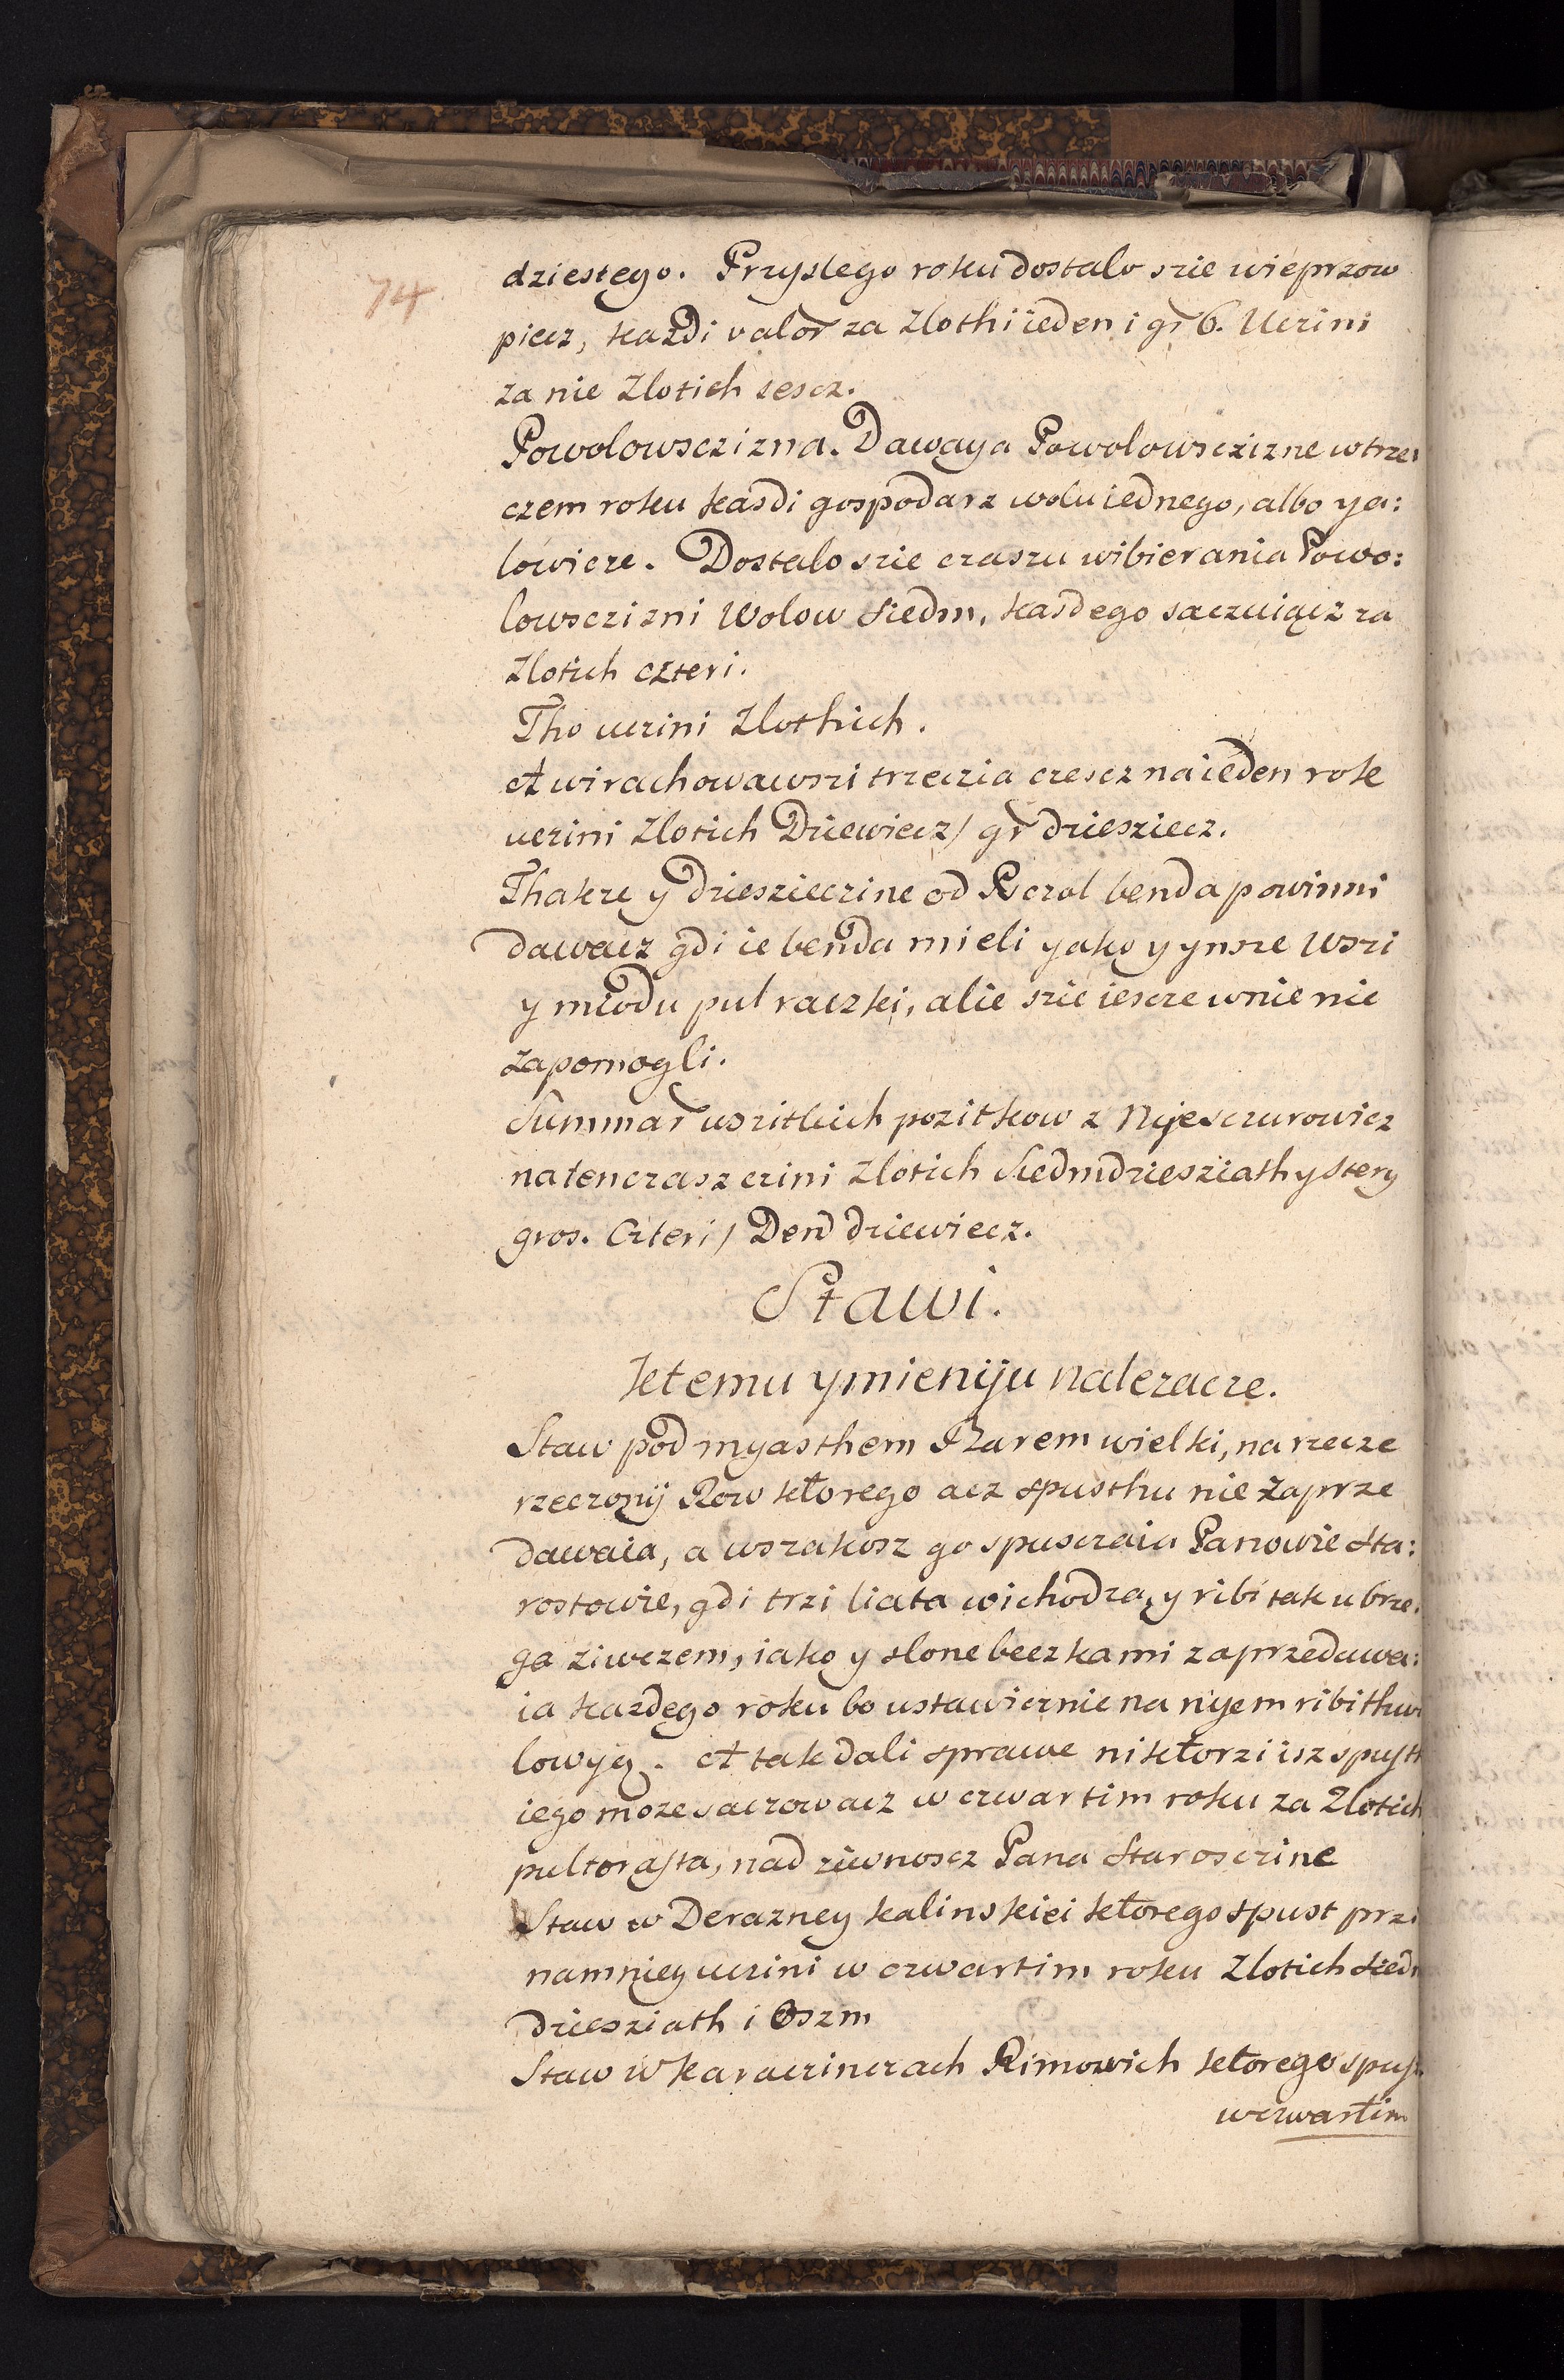 74
dziestego. Przyslego roku dostalo szie wieprzow
piecz, każdi valor za Zlothi ieden i gr 6. Uczini
za nie Zlotich sescz.
Powolowsczizna. Dawaya Powolowsczizne w trze
czem roku kasdi gospodarz wolu iednego, albo ya:
lowicze. Dostalo szie czaszu wibierania Powo:
lowsczizni Wolow siedm, kasdego saczuiącz za
Zlotich czteri.
Tho uczini Zlothich.
A wirachowawszi trzeczia czescz na ieden rok
uczini Zlotich Dziewiecz / gr dziesziecz.
Thakze y dzieszieczine od Pczol benda powinni
dawacz gdi ie benda mieli yako y ynsze wszi
y miodu pul raczki, alie szie iescze w nie nie
zapomogli.
Summar wszitkich pozitkow z Nyesczurowicz
na tenczasz czini Zlotich siedmdziesziath y stery
gros. Czteri / Den dziewiecz.
Stawi.
k temu ymieniju nalezacze.
Staw pod myasthem Barem wielki, na rzecze
rzeczonij Row ktorego acz spusthu nie zaprze
dawaia, a wszakosz go spusczaia Panowie sta:
rostowie, gdi trzi liata wichodza, y ribi tak u brze,
ga ziwczem, iako y slone beczkami zaprzedawa:
ia kazdego roku bo ustawicznie na nyem ribi thw
lowyą. A tak dali sprawe niktorzi isz spust
iego moze saczowacz w czwartim roku za Zlotich
pultorasta, nad ziwnoscz Pana starosczine
Staw w Derazney kalinskiei ktorego spust prz
namniey uczini w czwartim roku Zlotich siedm
dziesziath i Oszm
Staw w karaczinczach Rimowich ktorego spust
w czwartim